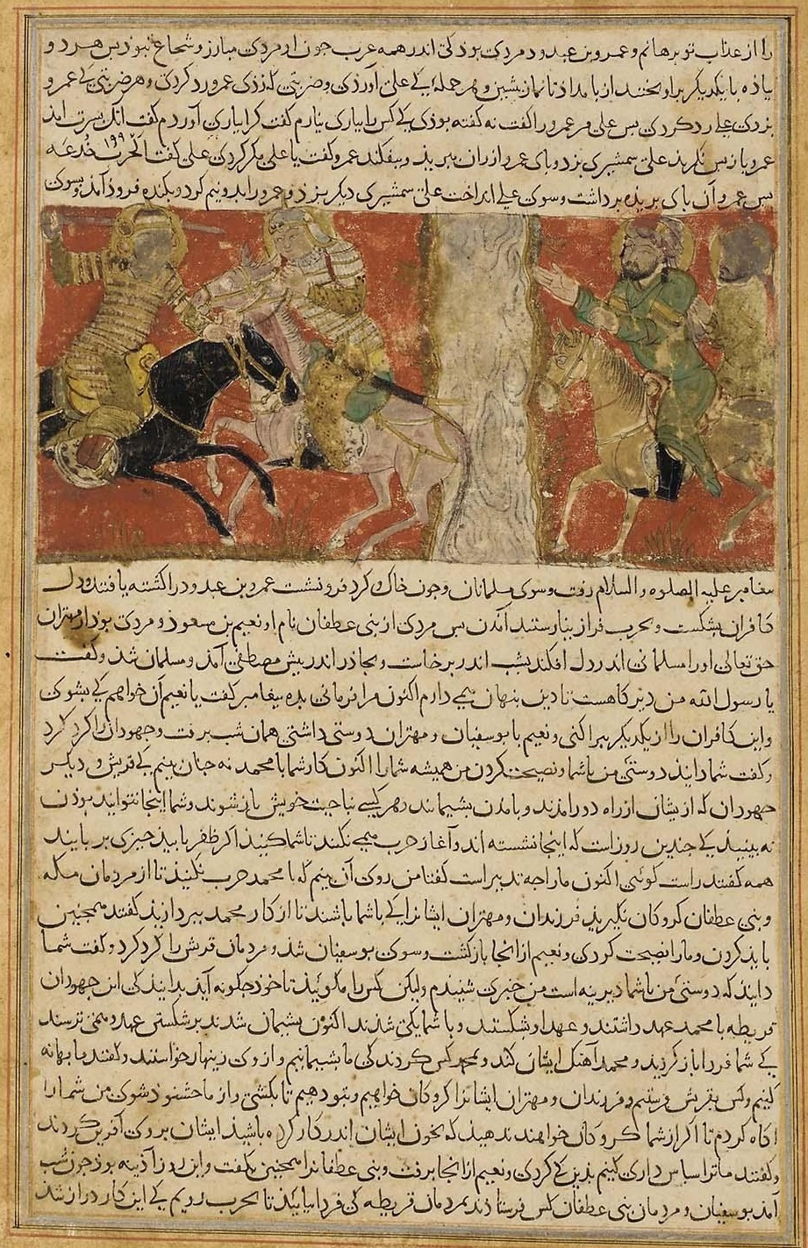 را از عذاب تو برهانم و عمرو بن عبدود مردی بوذ کی اندر همه عرب چون او مردی مبارز و شجاع نبوذ بس هر دو
بیاذه با یکدیکر براویختند از بامداد تا نماز بشین و هر حمله کی علی آوردی و ضربتی که زدی عمرو رد کردی و هر ضربتی کی عمرو
بزدی علی رد کردی بس علی مر عمرو را کفت نه کفته بوذی کی کس را بیاری نیارم کفت کرا بیاری آوردم کفت انک بسرت
عمرو باز بس نکرید علی شمشیری بزد و بای عمرو از ران ببرید و بیفکند عمرو کفت یا علی مکر کردی علی کفت الحرب خدعه
بس عمرو آن بای بریده برداشت و سوی علی انداخت علی شمشیری دیکر بزد و عمرو را بدو نیم کرد و بکنده فروذ آمذ و سوی
بیغامبر علیه الصلوه و السلام رفت و سوی مسلمانان و چون خاک کرد فرو نشست عمرو بن عبدود را کشته یافتند و دل
کافران بشکست و بحرب فراز نیارستند آمدن بس مردی از بنی غطفان نام او نعیم بن مسعود و مردی بوذ از مهتران
حق تعالی او را مسلمانی اندر دل افکند بشب اندر برخاست و بیامد اندر بیش مصطفی آمذ و مسلمان شذ و کفت
یا رسول الله من دیر کاهست تا دین بنهان همی دارم اکنون مرا فرمانی بده بیغامبر کفت یا نعیم آن خواهم کی بشوی
و این کافران را از یکدیکر ببراکنی و نعیم با بوسفیان و مهتران دوستی داشتی همان شب برفت و جهودان را کرد کرد
و کفت شما دانید دوستی من با شما و نصیحت کردن من همیشه شما را اکنون کار شما با محمد نه جنان بینم کی قریش و دیکر
جهودان که ایشان از راه دور آمدند و بآمدن بشیمانند و هر کسی بناحیت خویش باز شوند و شما اینجا نتوانید بوذن
نه بینید کی جندین روز است که اینجا نشسته اند و آغاز حرب همی نکنند تا شما کنید اکر ظفر یابند جیزی بربایند
همه کفتند راست کوئی اکنون ما را جه تدبیر است کفتا من روی آن بینم که با محمد حرب نکنید تا از مردمان مکه
و بنی غطفان کروکان نکیرید فرزندان و مهتران ایشانرا کی با شما باشند تا از کار محمد ببردازید کفتند همجنین
باید کردن و ما را نصیحت کردی و نعیم از انجا بازکشت و سوی بوسفیان شذ و مردمان قریش را کرد کرد و کفت شما
دانید که دوستی من با شما دیرینه است من خبری شنیدم ولیکن کس را مکوئید تا خوذ جکونه آید بدانید کی این جهودان
قریظه با محمد عهد داشتند و عهد او شکستند و با شما یکی شدند اکنون بشیمان شدند بر شکستی عهد و همی ترسند
کی شما فردا باز کردید و محمد آهنک ایشان کند و بمحمد کس کردند کی ما بشیمانیم و از وی زینهار خواستند و کفتند ما بهانه
کنیم و کس بقریش فرستیم و فرزندان و مهتران ایشانرا کروکان خواهیم و بتو دهیم تا بکشی و از ما خشنوذ شوی من شما را
اکاه کردم تا اکر از شما کروکان خواهند ندهید که بخون ایشان اندر کار کرده باشید ایشان بروی آفرین کردند
و کفتند ما ترا سباس داری کنیم بدین کی کردی و نعیم از انجا برفت و بنی غطفانرا همجنین بکفت و این روز آذینه بوذ جون شب
آمد بوسفیان و مردمان بنی غطفان کس فرستاذند بمردمان قریظه کی فردا بیایید تا بحرب رویم کی این کار دراز شذ